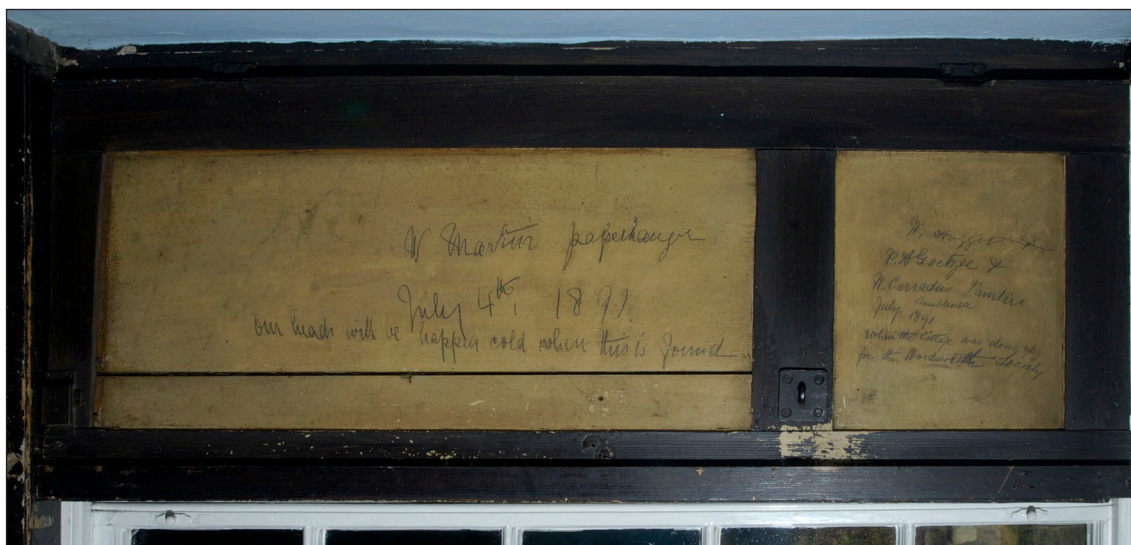 W Martin paperhanger
July 4th, 1891
our heads will be happen cold when this is found
W.
&
W. Carradus Painters
Ambleside
July 1891
when this Cottage was done up
for the Wordsworth Society